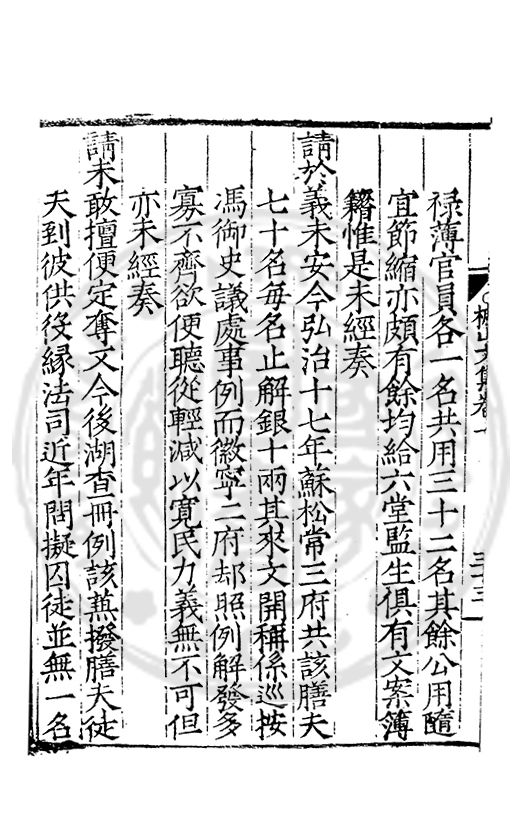 楓山文集卷一
三十三
祿薄官員各一名共用三十二名其餘公用隨
宜節縮亦頗有餘均給六堂監生俱有文案簿
籍惟是未經奏
請於義未安今弘治十七年蘇松常三府共該膳夫
七十名每名止解銀十兩其來文開稱係巡按
馮御史議處事例而徽寧二府却照例解發多
寡不齊欲便聽從輕減以寬民力義無不可但
亦未經奏
請未敢擅便定奪又今後湖查冊例該蒸撥膳夫徒
夫到彼供役緣法司近年問擬囚徒並無一名